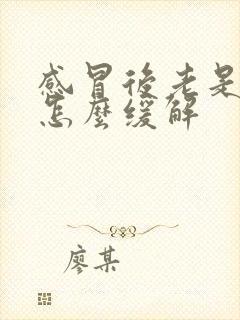 感冒後老是
怎麼緩解
廖某